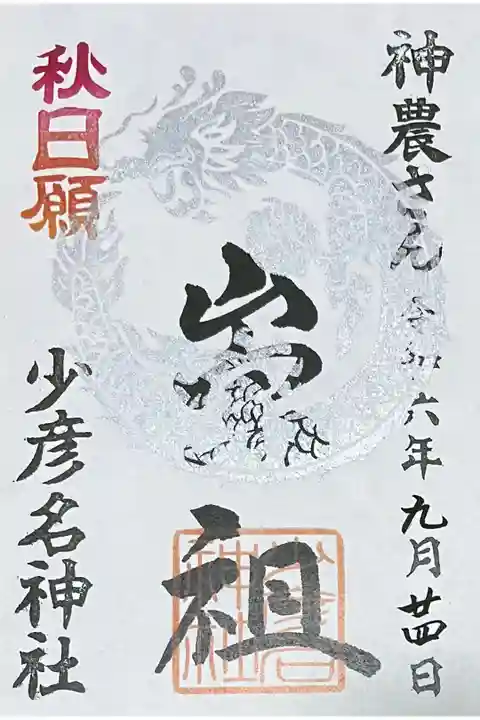 神農さん 令和六年九月廿四日
祖
秋日願
少彦名神社